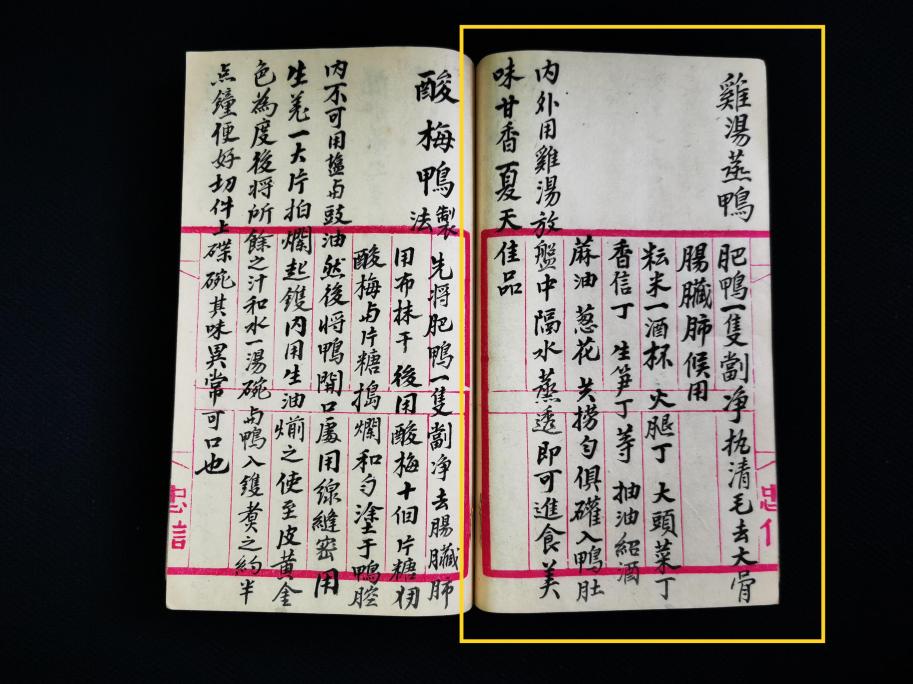 雞湯蒸鴨
肥鴨一隻劏净执清毛去大骨
腸臟肺候用
耘米一酒杯 火腿丁 大頭菜丁
香信丁 生笋丁等 抽油紹酒
蔴油 葱花 共撈匀俱罐入鴨肚
内外用雞湯放盤中隔水蒸透即可進食美
味甘香夏天佳品
酸梅鴨製法
先將肥鴨一隻劏净去腸臟肺
用布抹干後用酸梅十個片糖
酸梅与片糖搗爛和匀塗于鴨腔
内不可用盐与豉油然後將鴨開口處用線縫密用
生羌一大片拍爛起鑊内用生油煎之使至皮黄金
色為度後將所餘之汁和水一湯碗与鴨入鑊煑之約半
点鐘便好切件上碟碗其味異常可口也
忠信
忠信